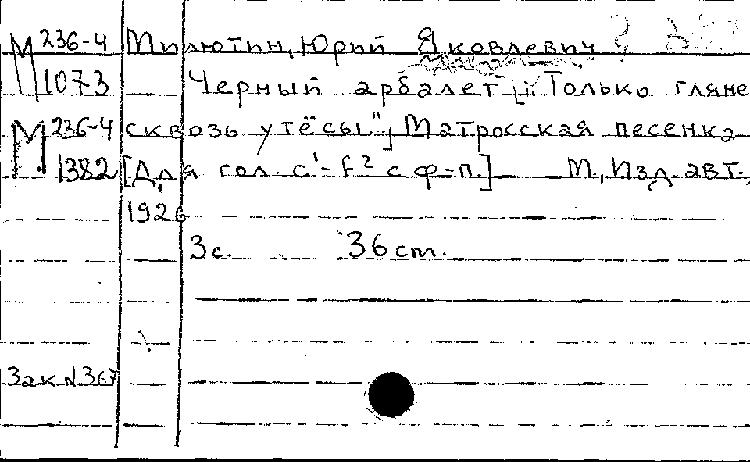 М 236-4 Милютин, Юрий Яковлевич
1073 Черный арбалет [: "Только гляне
М 236-4 сквозь утёсы"] Матросская песенка
1382 [Для гол. c¹-f² с ф-п.] М., Изд. авт.,
1926
3 с. 36 cm.
Зак. № 367